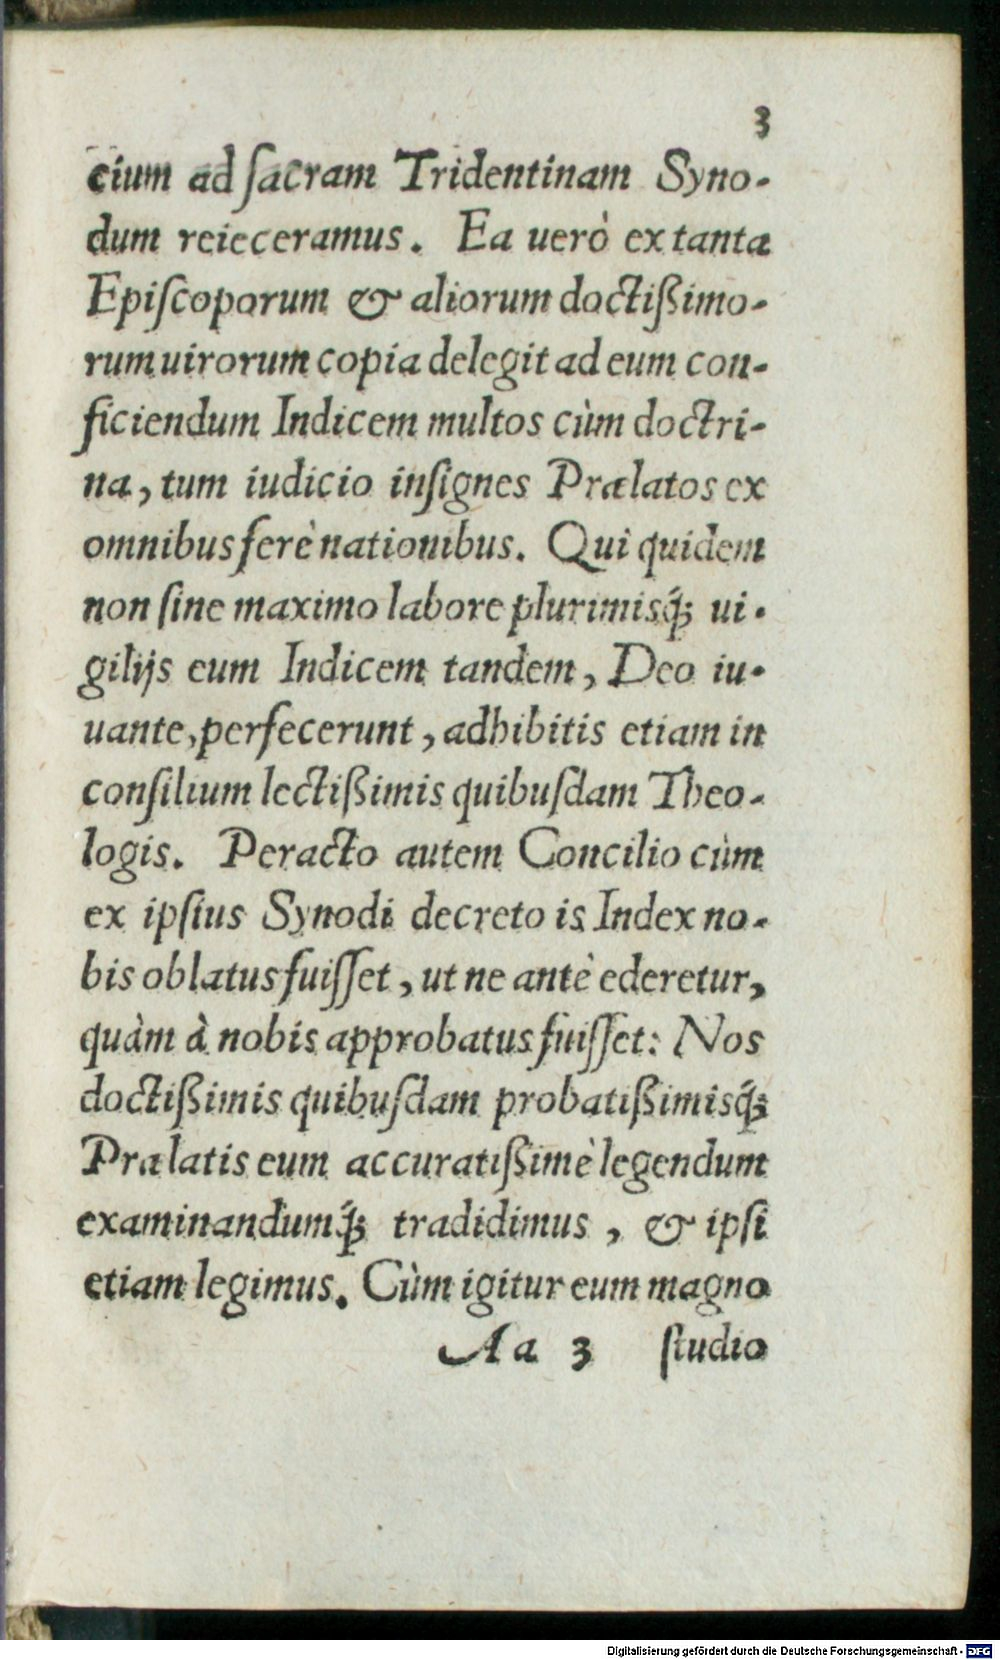 3
cium ad ſacram Tridentinam Syno-
dum reieceramus. Ea uerò ex tanta
Epiſcoporum & aliorum doctiſsimo-
rum uirorum copia delegit ad eum con-
ficiendum Indicem multos cùm doctri-
na, tum iudicio inſignes Prælatos ex
omnibus ferè nationibus. Qui quidem
non ſine maximo labore plurimisq́; ui-
gilijs eum Indicem tandem, Deo iu-
uante, perfecerunt, adhibitis etiam in
conſilium lectiſsimis quibuſdam Theo-
logis. Peracto autem Concilio cùm
ex ipſius Synodi decreto is Index no-
bis oblatus fuiſſet, ut ne antè ederetur,
quàm à nobis approbatus fuiſſet: Nos
doctiſsimis quibuſdam probatiſsimisq́;
Prælatis eum accuratiſsimè legendum
examinandumq́; tradidimus, & ipſi
etiam legimus. Cùm igitur eum magno
Aa 3 ſtudio
Digitalisierung gefördert durch die Deutsche Forschungsgemeinschaft - DFG